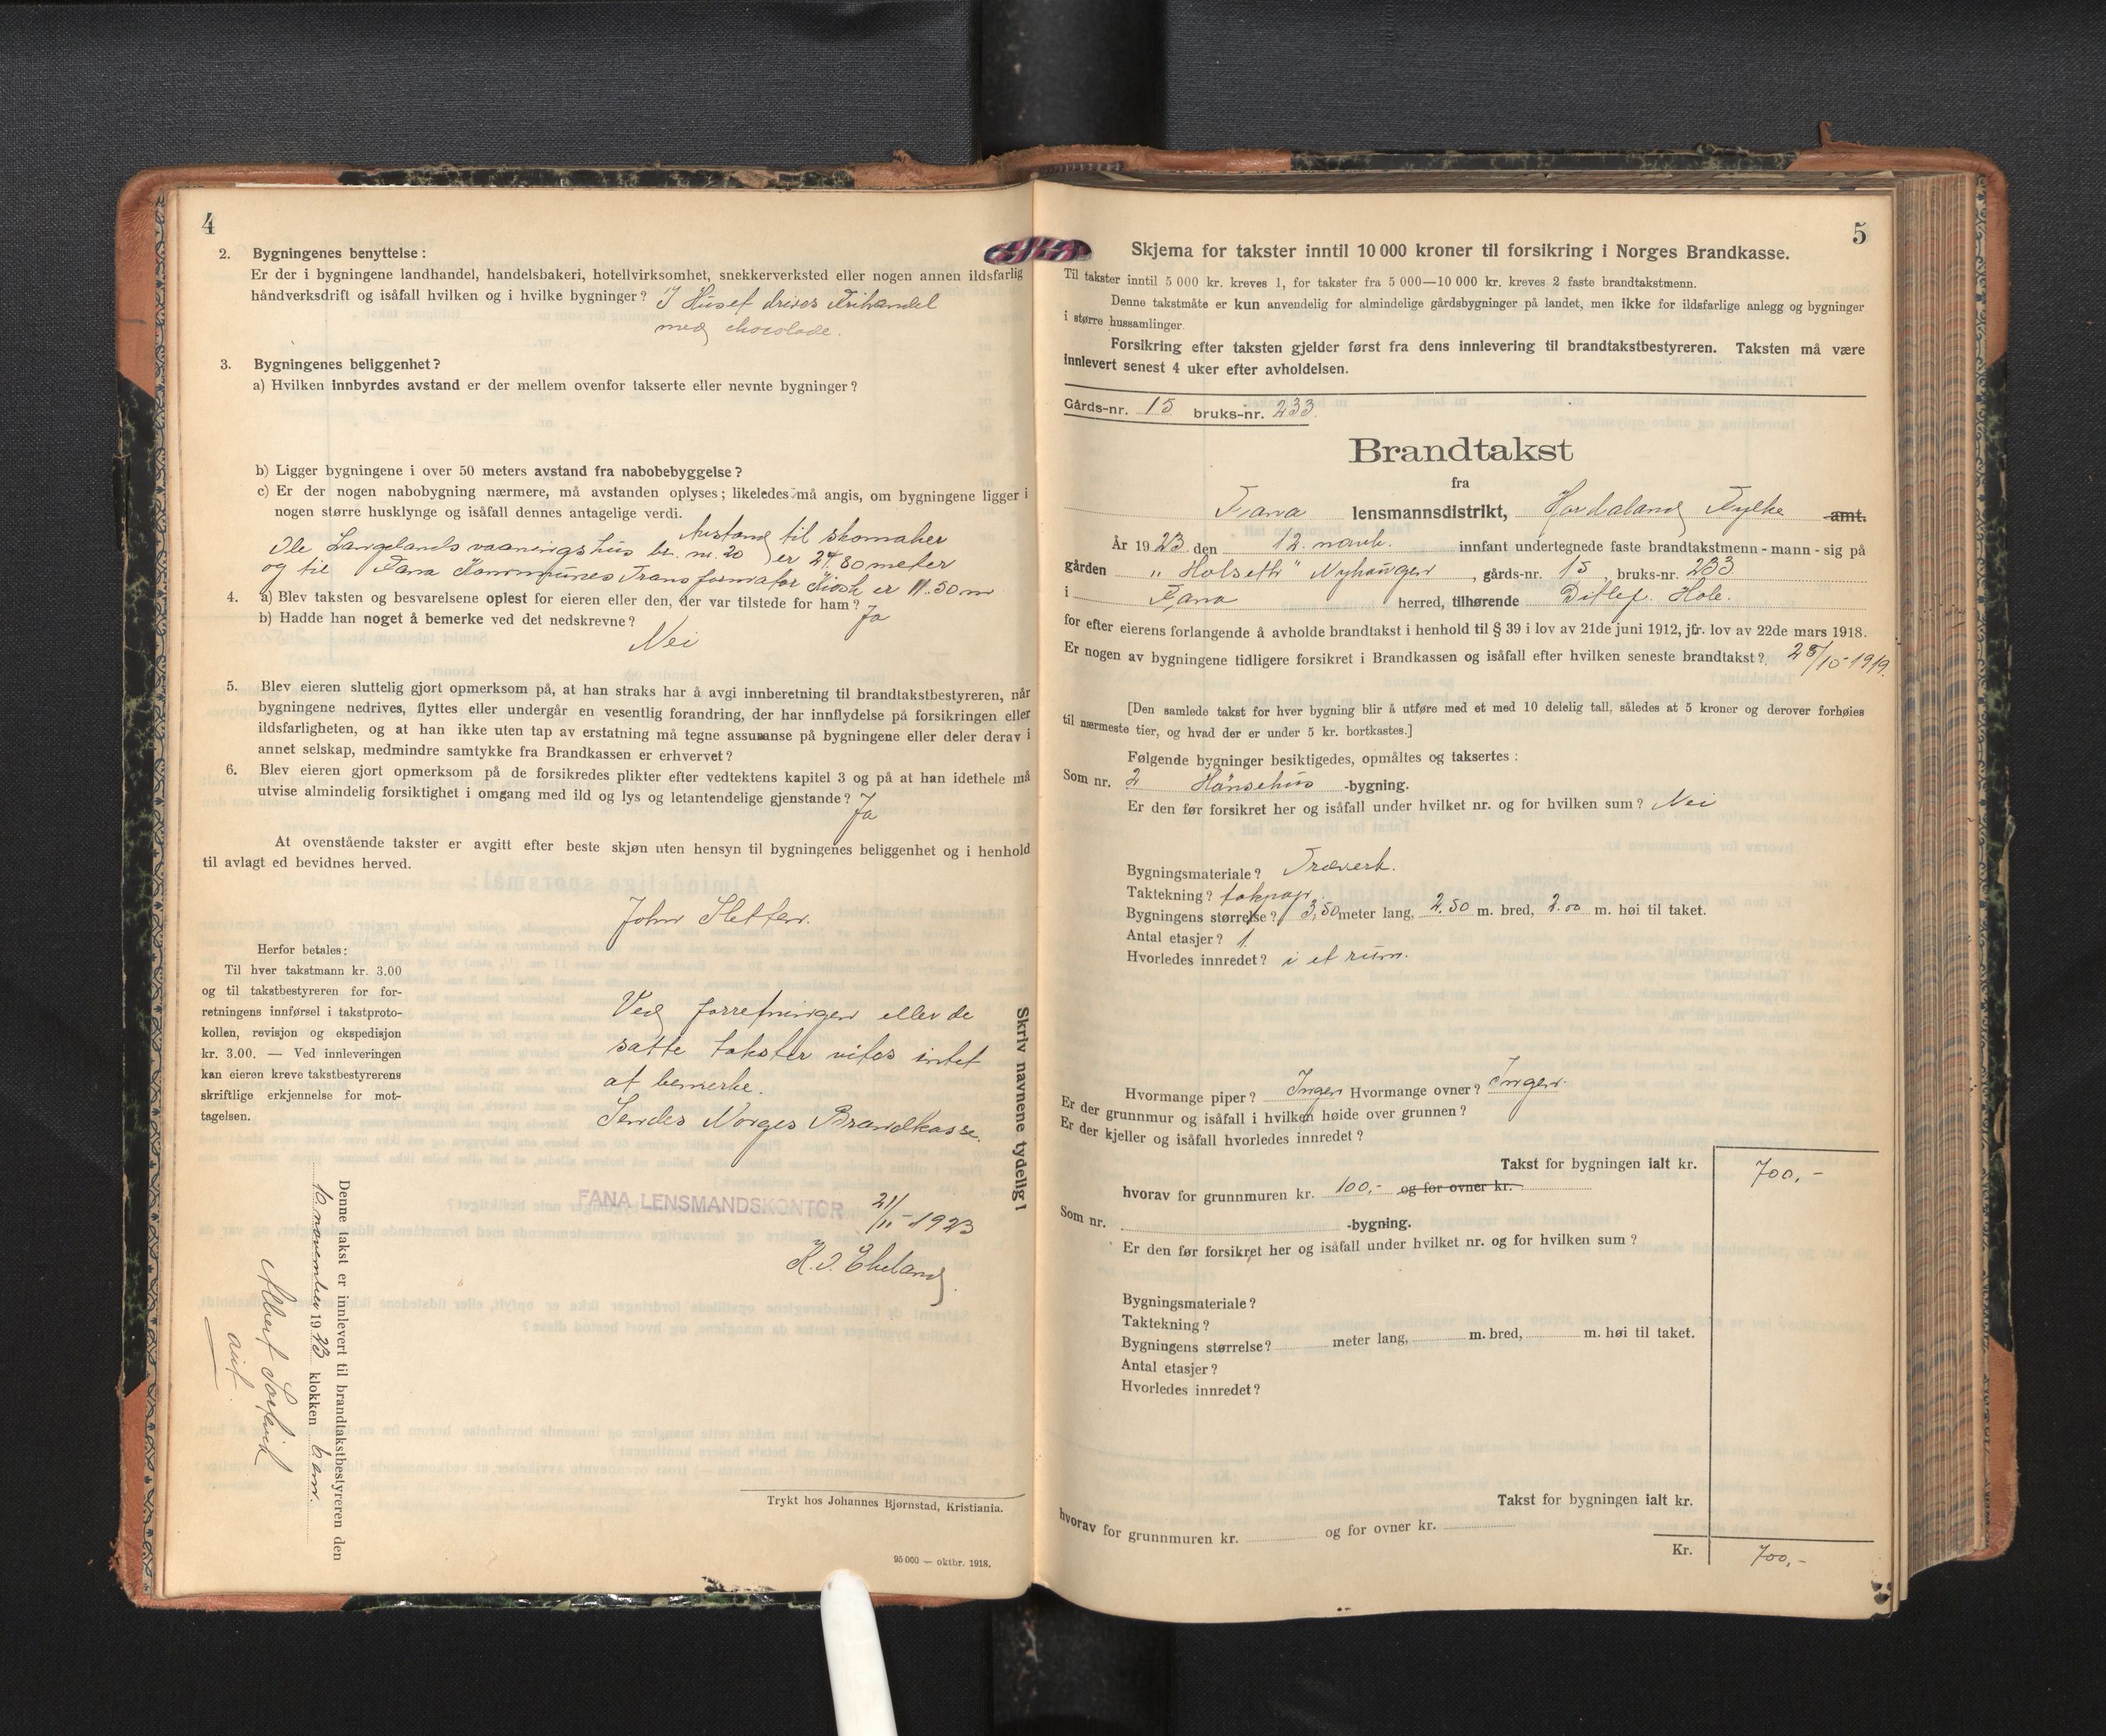 4
2. Bygningenes benyttelse:
Er der i bygningene landhandel, handelsbakeri, hotellvirksomhet, snekkerverksted eller nogen annen ildsfarlig
håndverksdrift og isåfall hvilken og i hvilke bygninger? I Huset drives Frihandel
med chocolade.
3. Bygningenes beliggenhet?
a) Hvilken innbyrdes avstand er der mellem ovenfor takserte eller nevnte bygninger?
b) Ligger bygningene i over 50 meters avstand fra nabobebyggelse?
c) Er der nogen nabobygning nærmere, må avstanden oplyses; likeledes må angis, om bygningene ligger i
nogen større husklynge og isåfall dennes antagelige verdi.
Avstand til skomaker
Ole Langelands vaaningshus br. nr. 20 er 24.80 meter
og til Fana Kommunes Transformator Kiosk er 11.50 m
4. a) Blev taksten og besvarelsene oplest for eieren eller den, der var tilstede for ham? Ja
b) Hadde han noget å bemerke ved det nedskrevne? Nei
5. Blev eieren sluttelig gjort opmerksom på, at han straks har å avgi innberetning til brandtakstbestyreren, når
bygningene nedrives, flyttes eller undergår en vesentlig forandring, der har innflydelse på forsikringen eller
ildsfarligheten, og at han ikke uten tap av erstatning må tegne assuranse på bygningene eller deler derav i
annet selskap, medmindre samtykke fra Brandkassen er erhvervet?
6. Blev eieren gjort opmerksom på de forsikredes plikter efter vedtektens kapitel 3 og på at han idethele må
utvise almindelig forsiktighet i omgang med ild og lys og letantendelige gjenstande? Ja
At ovenstående takster er avgitt efter beste skjøn uten hensyn til bygningenes beliggenhet og i henhold
til avlagt ed bevidnes herved.
John Sletten.
Herfor betales:
Til hver takstmann kr. 3.00
og til takstbestyreren for for-
retningens innførsel i takstproto-
kollen, revisjon og ekspedisjon
kr. 3.00. — Ved innleveringen
kan eieren kreve takstbestyrerens
skriftlige erkjennelse for mot-
tagelsen.
Ved forretningen eller de
satte takster vites intet
at bemerke.
Sendes Norges Brandkasse.
FANA LENSMANDSKONTOR 21/11-1923
Skriv navnene tydelig!
Denne takst er innlevert til brandtakstbestyreren den
19 23 klokken 6 em.
Trykt hos Johannes Bjørnstad, Kristiania.
95 000 — oktbr. 1918.
5
Skjema for takster inntil 10 000 kroner til forsikring i Norges Brandkasse.
Til takster inntil 5 000 kr. kreves 1, for takster fra 5 000—10 000 kr. kreves 2 faste brandtakstmenn.
Denne takstmåte er kun anvendelig for almindelige gårdsbygninger på landet, men ikke for ildsfarlige anlegg og bygninger
i større hussamlinger.
Forsikring efter taksten gjelder først fra dens innlevering til brandtakstbestyreren. Taksten må være
innlevert senest 4 uker efter avholdelsen.
Gårds-nr. 15 bruks-nr. 233.
Brandtakst
fra
Fana lensmannsdistrikt, Hordaland Fylke amt.
År 1923 den 12. novb. innfant undertegnede faste brandtakstmenn - mann - sig på
gården „Holseth" Nyhaugen, gårds-nr. 15, bruks-nr. 233
i Fana herred, tilhørende Ditlef Hole.
for efter eierens forlangende å avholde brandtakst i henhold til § 39 i lov av 21de juni 1912, jfr. lov av 22de mars 1918.
Er nogen av bygningene tidligere forsikret i Brandkassen og isåfall efter hvilken seneste brandtakst? 28/10-1919.
[Den samlede takst for hver bygning blir å utføre med et med 10 delelig tall, således at 5 kroner og derover forhøies
til nærmeste tier, og hvad der er under 5 kr. bortkastes.]
Følgende bygninger besiktigedes, opmåltes og taksertes:
Som nr. 2 Hønsehus -bygning.
Er den før forsikret her og isåfall under hvilket nr. og for hvilken sum? Nei
Bygningsmateriale? Træverk.
Taktekning? takpap.
Bygningens størrelse? 3,50 meter lang, 2.50 m. bred, 2.00 m. høi til taket.
Antal etasjer? 1.
Hvorledes innredet? i et rum.
Hvormange piper? Ingen Hvormange ovner? Ingen.
Er der grunnmur og isåfall i hvilken høide over grunnen?
Er der kjeller og isåfall hvorledes innredet?
Takst for bygningen ialt kr. 700,-
hvorav for grunnmuren kr. 100,- og for ovner kr.
Som nr. -bygning.
Er den før forsikret her og isåfall under hvilket nr. og for hvilken sum?
Bygningsmateriale?
Taktekning?
Bygningens størrelse? meter lang, m. bred, m. høi til taket.
Antal etasjer?
Hvorledes innredet?
Takst for bygningen ialt kr.
hvorav for grunnmuren kr. og for ovner kr.
Kr. 700,-